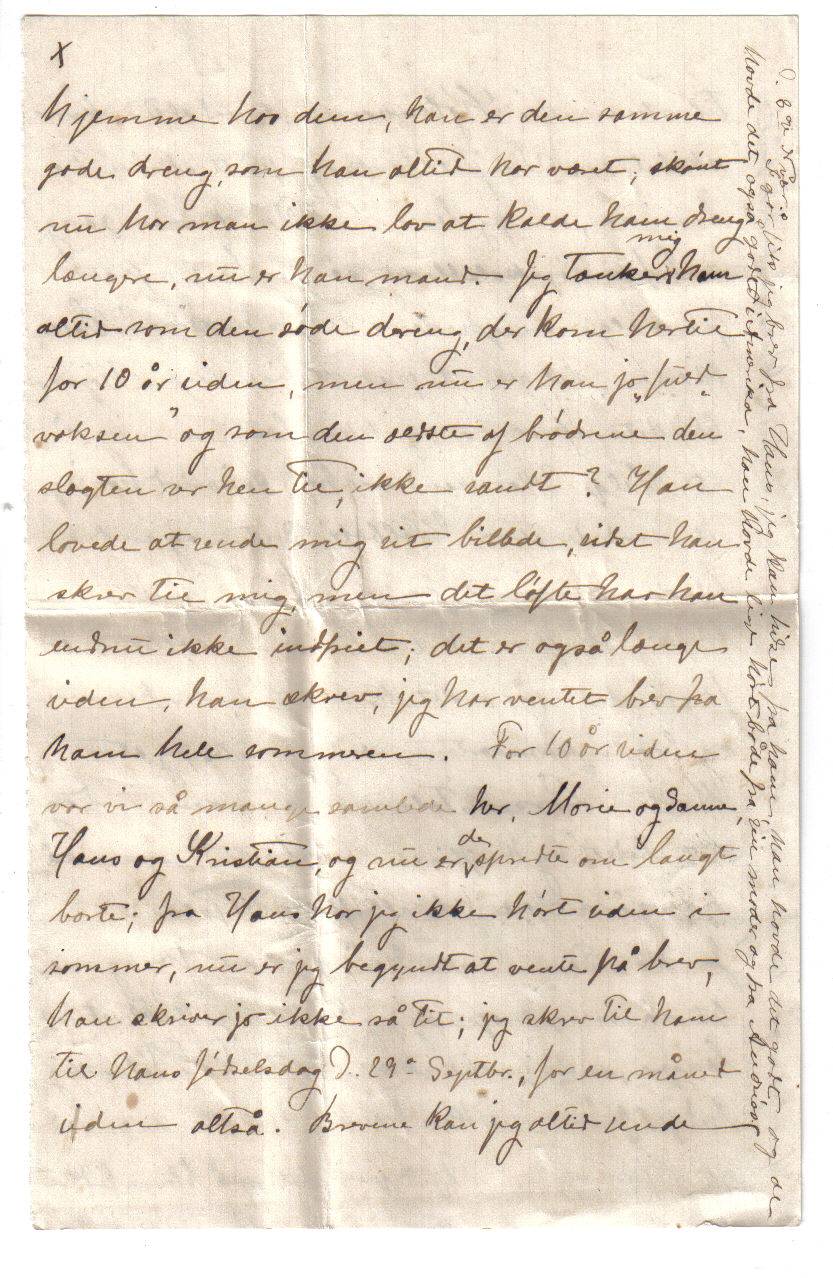 x
hjemme hos dem, han er den samme
gode dreng, som han altid har været, skönt
nu har man ikke lov at kalde ham dreng
længere, nu er han mand. Jeg tænker mig ham
altid som den söde dreng, der kom hertil
for 10 år siden, men nu er han jo "fuld
voksen" og som den ældste af brödrene den
slægten ser hen til, ikke sandt? Han
lovede at sende mig sit billede, sidst han
skrev til mig, men det löfte har han
endnu ikke indfriet; det er også længe
siden, han skrev, jeg har ventet brev fra
ham hele sommeren. For 10 år siden
var vi så mange samlede her, Marie og Sanne,
Hans og Kristian, og nu er de spredte om langt
borte; fra Hans har jeg ikke hört siden i
sommer, nu er jeg begyndt at vente på brev,
han skriver jo ikke så tit; jeg skrev til ham
til hans födselsdag d. 29de Septbr., for en måned
siden altså. Brevene kan jeg altid sende
D. 6te Nov. I går fik jeg brev fra Hans, jeg kan hilse fra ham, han havde det godt, og de
havde det også godt i Amerika, han havde lige hört både fra sin moder og fra